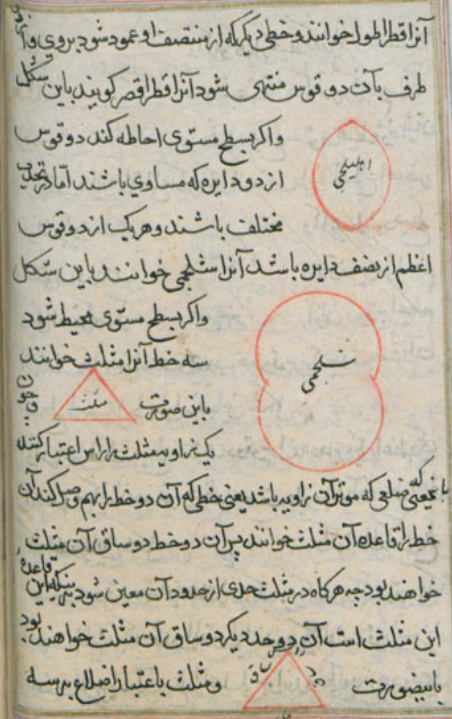 آنرا قطر اطول خوانند و خطی دیگر که از منتصف او عمود شود بروی و از دو
طرف بآن دو قوس منتهی شود آنرا قطر اقصر کویند باین شکل
واکر بسطح مستوی احاطه کند دو قوس
اهلیلجی
از دو دایره که مساوی باشند امّا در تحدب
مختلف باشند و هر یک از دو قوس
اعظم از نصف دایره باشد آنرا شلجمی خوانند باین شکل
واکر بسطح مستوی محیط شود
سه خط آنرا مثلث خوانند
شلجمی
باین صورت
مثلث
و چون
یک زاویه مثلث را راس اعتبار کنند
ضلعی که موتر آن زاویه باشد یعنی خطی که آن دو خط را بهم وصل کند آن
خط را قاعده آن مثلث خوانند پس آن دو خط دو ساق آن مثلث
خواهند بود چه هرکاه در مثلث حدی از حدود آن معین شود که قاعده
این مثلث است آن دو حد دیکر دو ساق آن مثلث خواهند بود
باینصورت
و مثلث باعتبار اضلاع بر سه